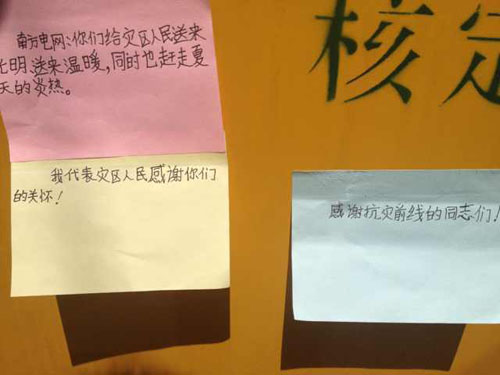 南方电网:你们给灾区人民送来
光明,送来温暖,同时也赶走夏
天的炎热。
我代表灾区人民感谢你们
的关怀!
核定
感谢抗灾前线的同志们!